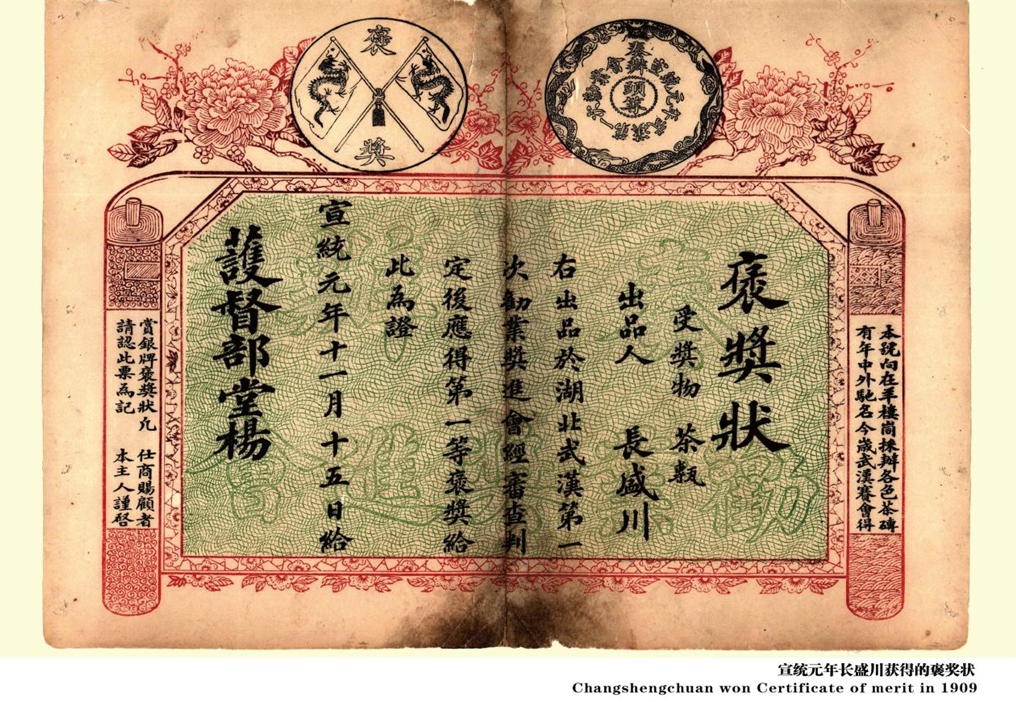 褒獎
頭等
本號向在羊樓崗採辦各色茶磚
有年中外馳名今歲武漢賽會得
褒獎狀
受獎物 茶
出品人 長盛川
右出品於湖北武漢第一
次勸業獎進會經審查判
定後應得第一等褒獎給
此為證
宣統元年十一月十五日給
護督部堂楊
賞銀牌褒獎狀凡 仕商賜顧者
請認此票為記 本主人謹啓
宣统元年长盛川获得的褒奖状
Changshengchuan won Certificate of merit in 1909